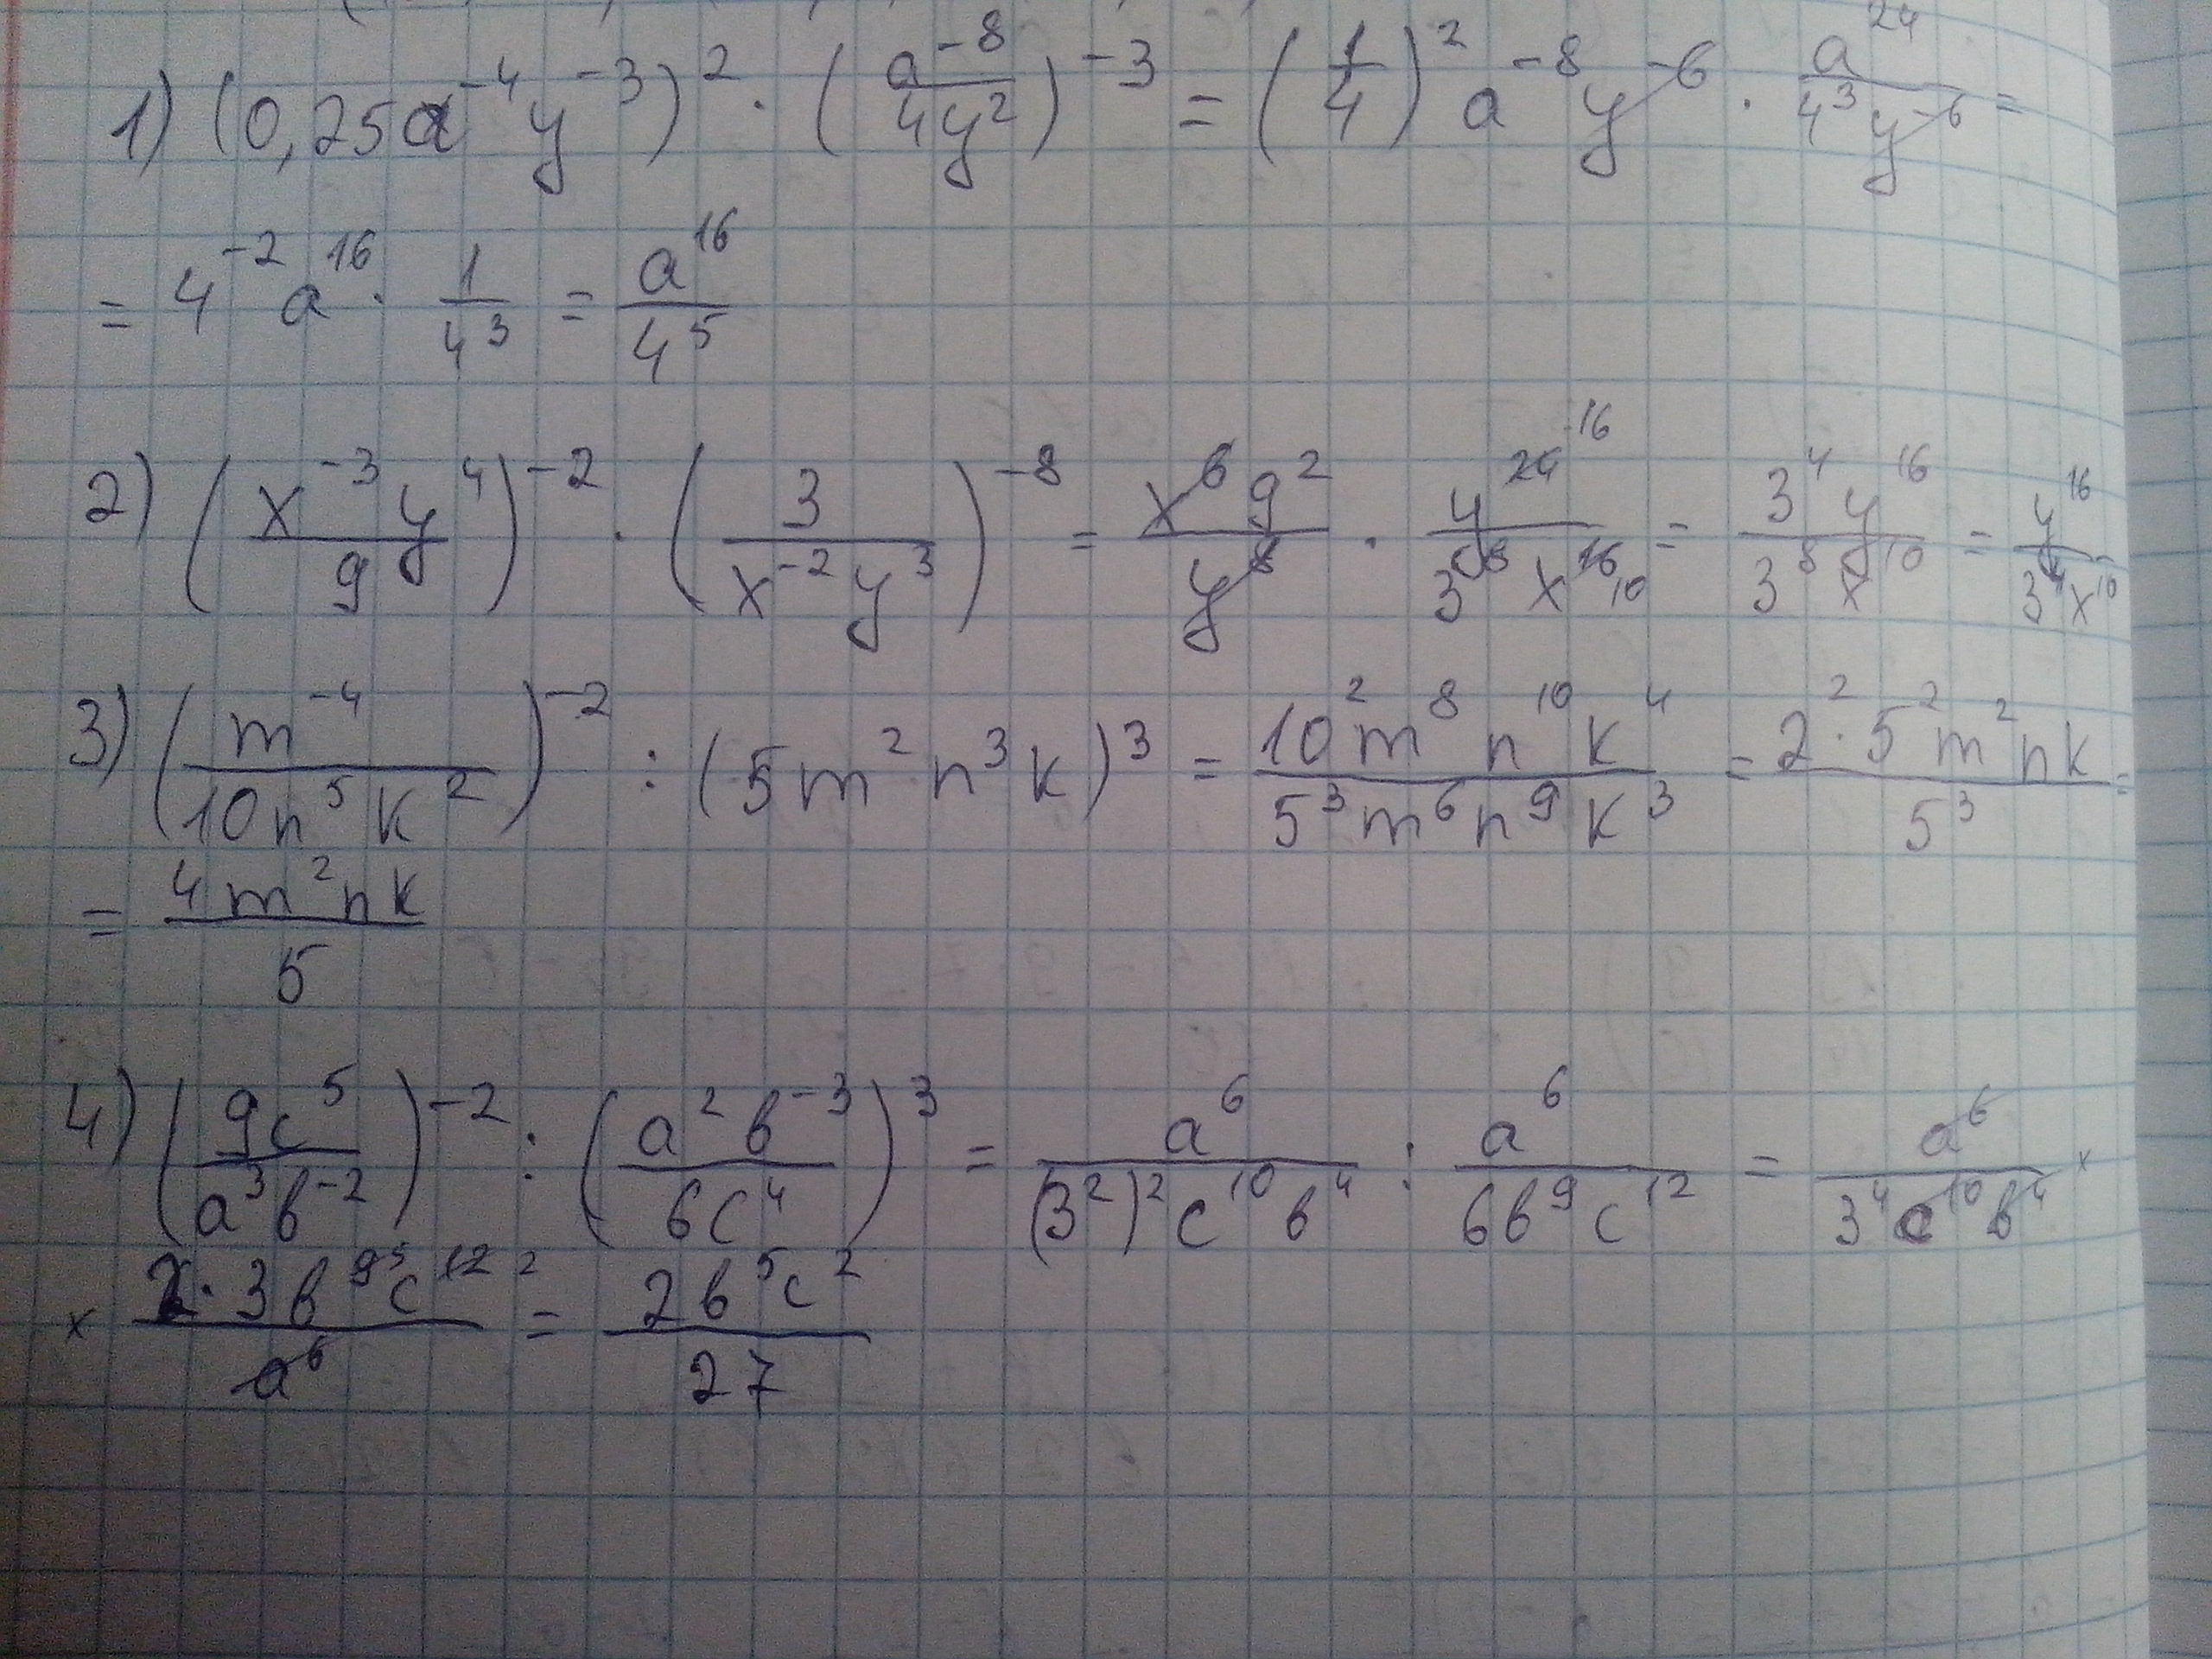 1) (0,25a⁻⁴y⁻³)² · (a⁻⁸/4y²)⁻³ = (1/4)² a⁻⁸ y⁻⁶ · a²⁴/4³y⁻⁶ =
= 4⁻² a¹⁶ · 1/4³ = a¹⁶/4⁵
2) (x⁻³y⁴/9)⁻² · (3/x⁻²y³)⁻⁸ = x⁶9²/y⁸ · y²⁴ ¹⁶/3⁸x¹⁶ ¹⁰ = 3⁴y¹⁶/3⁸x¹⁰ = y¹⁶/3⁴x¹⁰
3) (m⁻⁴/10n⁵k²)⁻² : (5m²n³k)³ = 10²m⁸n¹⁰k⁴/5³m⁶n⁹k³ = 2²·5²m²nk/5³ =
= 4m²nk/5
4) (9c⁵/a³b⁻²)⁻² : (a²b⁻³/6c⁴)³ = a⁶/(3²)²c¹⁰b⁴ : a⁶/6b⁹c¹² = a⁶/3⁴c¹⁰b⁴ ×
× 2·3b⁹ ⁵c¹² ²/a⁶ = 2b⁵c²/27